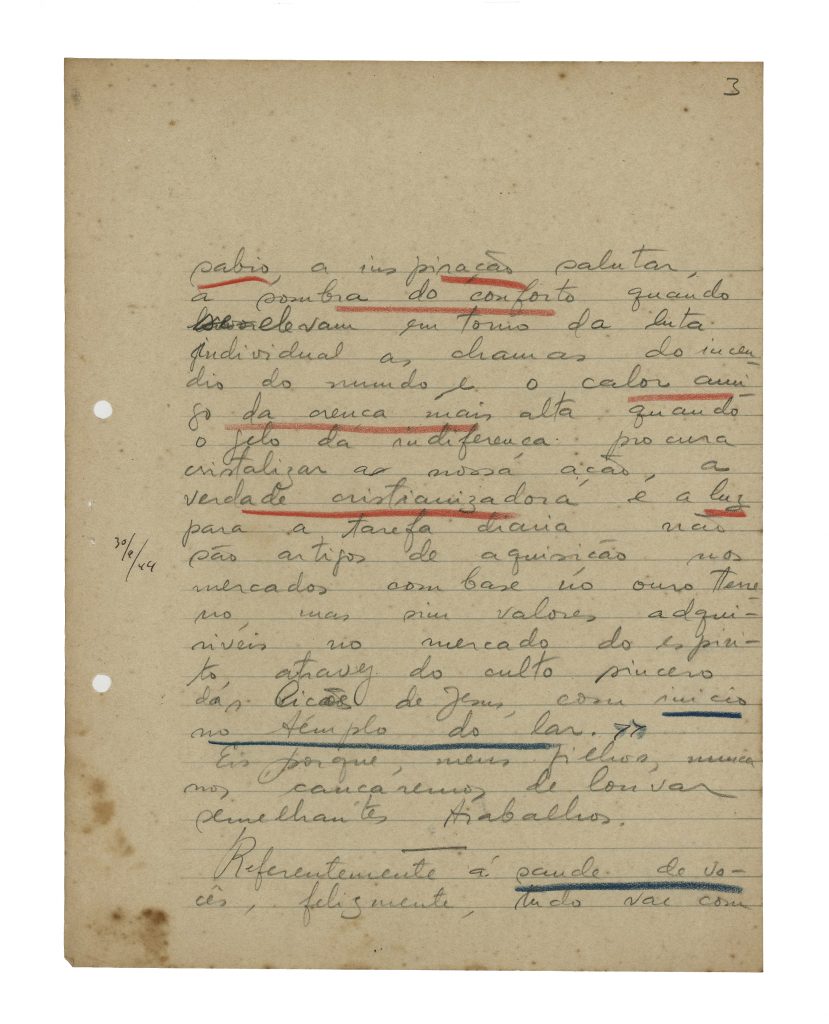 3
sabio, a inspiração salutar,
a sombra do conforto quando
se elevam em torno da luta
individual as chamas do incen-
dio do mundo e o calor ami-
go da crença mais alta quando
o gelo da indiferença procura
cristalizar a nossa ação, a
verdade cristianizadora e a luz
para a tarefa diaria não
são artigos de aquisição nos
mercados com base no ouro terre-
no, mas sim valores adqui-
riveis no mercado do espiri-
to, atravez do culto sincero
das lições de Jesus, com inicio
no templo do lar. >>
Eis porque, meus filhos, nunca
nos cançaremos de louvar
semelhantes trabalhos.
Referentemente á saude de vo-
cês, felizmente, tudo vae com
30/9/44